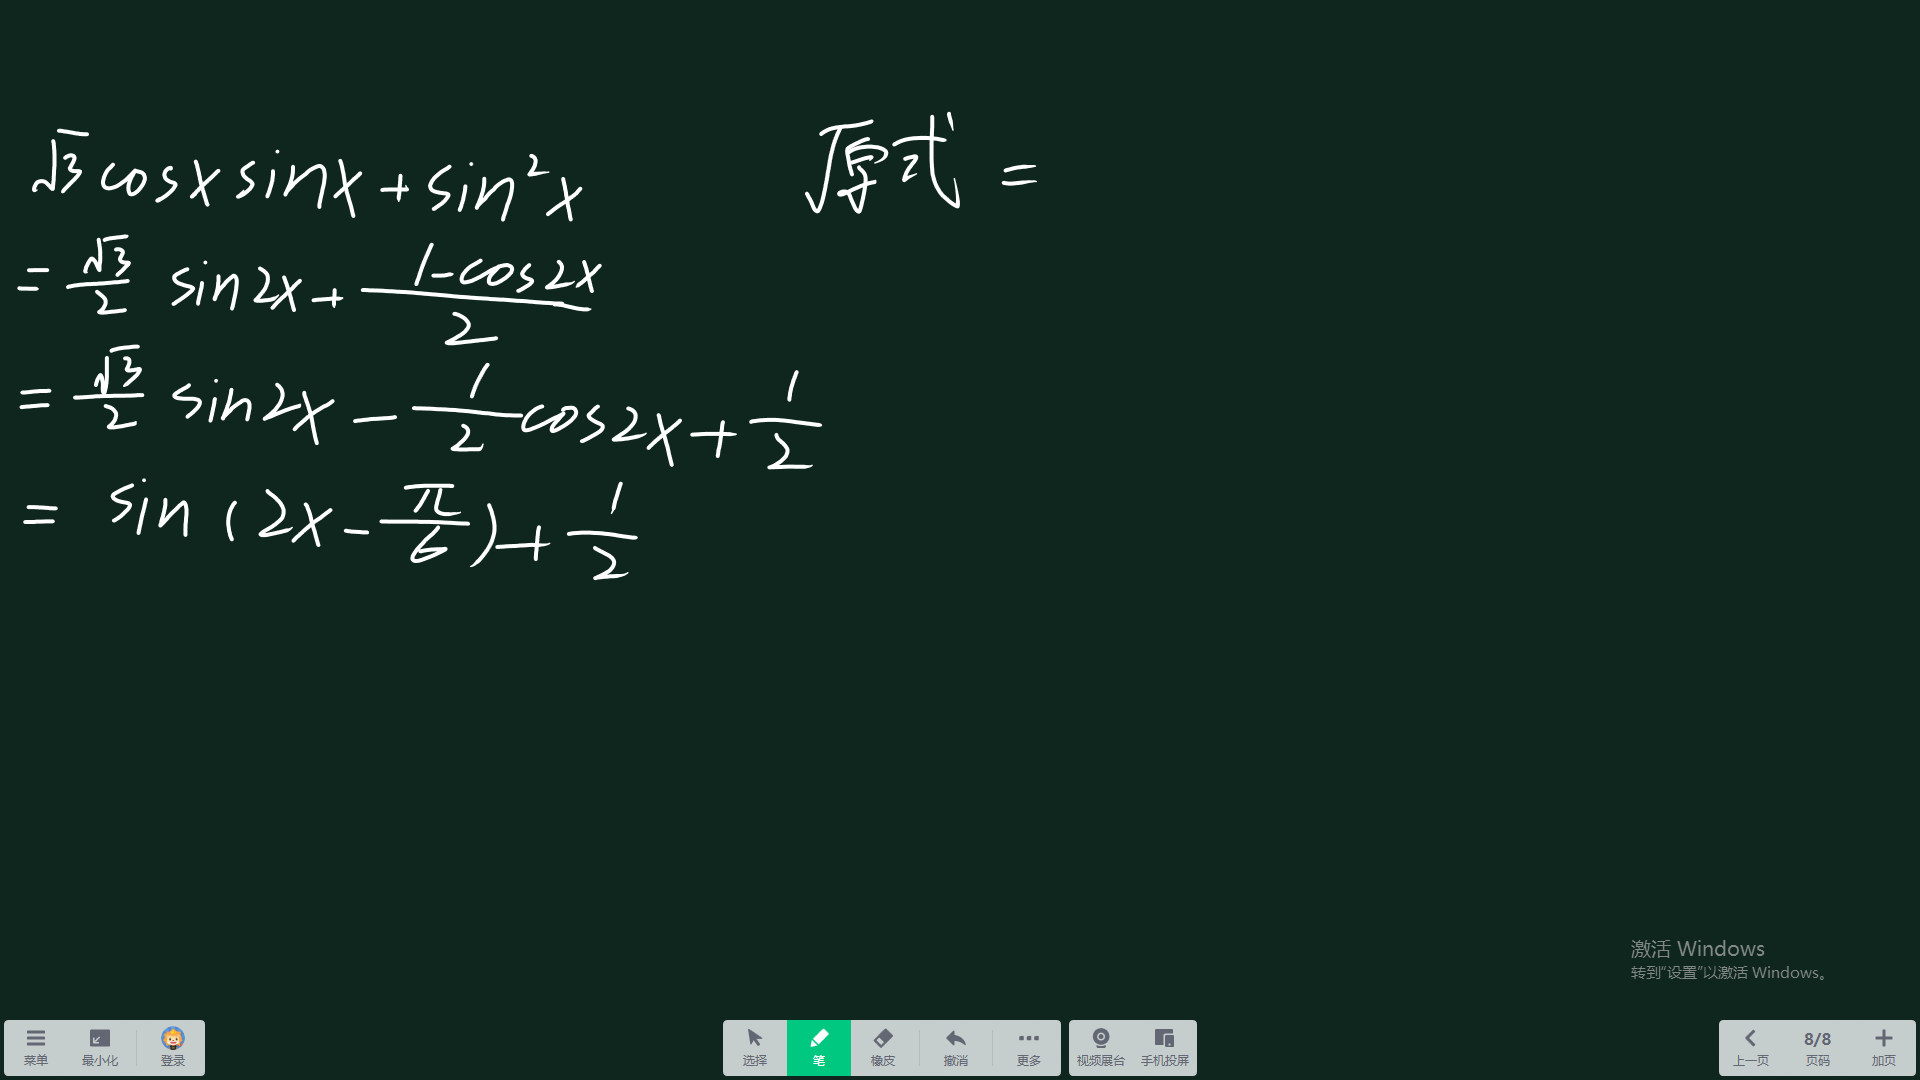 √3 cosx sinx + sin²x
= √3/2 sin2x + (1-cos2x)/2
= √3/2 sin2x - 1/2 cos2x + 1/2
= sin(2x - π/6) + 1/2
原式 =
激活 Windows
转到“设置”以激活 Windows。
菜单 最小化 登录 选择 笔 橡皮 撤消 更多 视频展台 手机投屏 上一页 8/8 页码 加页